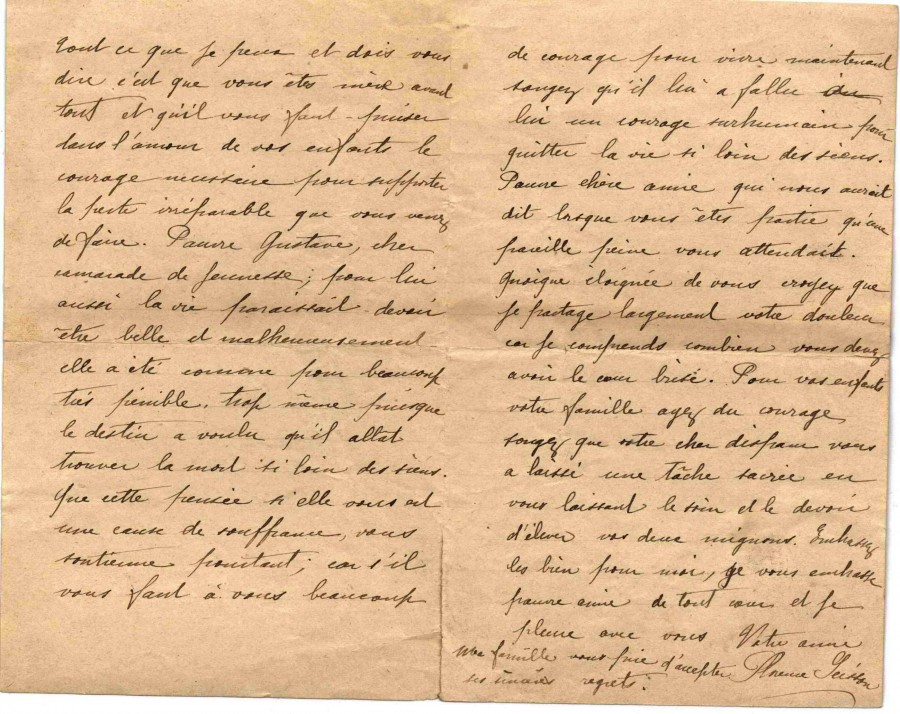 tout ce que je peux et dois vous
dire c'est que vous êtes mère avant
tout et qu'il vous faut puiser
dans l'amour de vos enfants le
courage necessaire pour supporter
la perte irréparable que vous venez
de faire. Pauvre Gustave, cher
camarade de jeunesse; pour lui
aussi la vie paraissait devoir
être belle et malheureusement
elle a été comme pour beaucoup
très pénible, trop même puisque
le destin a voulu qu'il allat
trouver la mort si loin des siens.
Que cette pensée si elle vous est
une cause de souffrance, vous
soutienne pourtant; car s'il
vous faut à vous beaucoup
de courage pour vivre maintenant
songez qu'il lui a fallu
lui un courage surhumain pour
quitter la vie si loin des siens.
Pauvre chère amie qui nous aurait
dit lorsque vous êtes partie qu'une
pareille peine vous attendait.
Quoique éloignée de vous croyez que
je partage largement votre douleur
car je comprends combien vous devez
avoir le cœur brisé. Pour vos enfants
votre famille ayez du courage
songez que votre cher disparu vous
a laissé une tâche sacrée en
vous laissant le soin et le devoir
d'élever vos deux mignons. Embrassez
les bien pour moi, je vous embrasse
pauvre amie de tout cœur et je
pleure avec vous Votre amie
Florence
Ma famille vous prie d'accepter
ses sincères regrets.